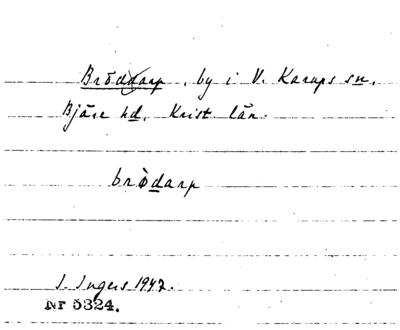 Bröddarp, by i V. Karups sn.
Bjäre hd. Krist län.
brödarp
I. Ingers 1947.
Nr 5324.